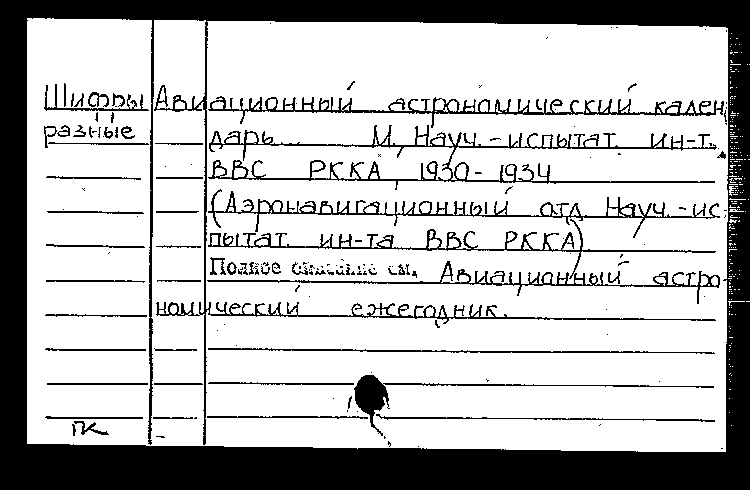 Шифры Авиационный астрономический кален
разные дарь... М., Науч.-испытат. ин-т.
ВВС РККА, 1930-1934
(Аэронавигационный отд. Науч.-ис-
пытат. ин-та ВВС РККА)
Полное описание см. Авиационный астро-
номический ежегодник.
ПК